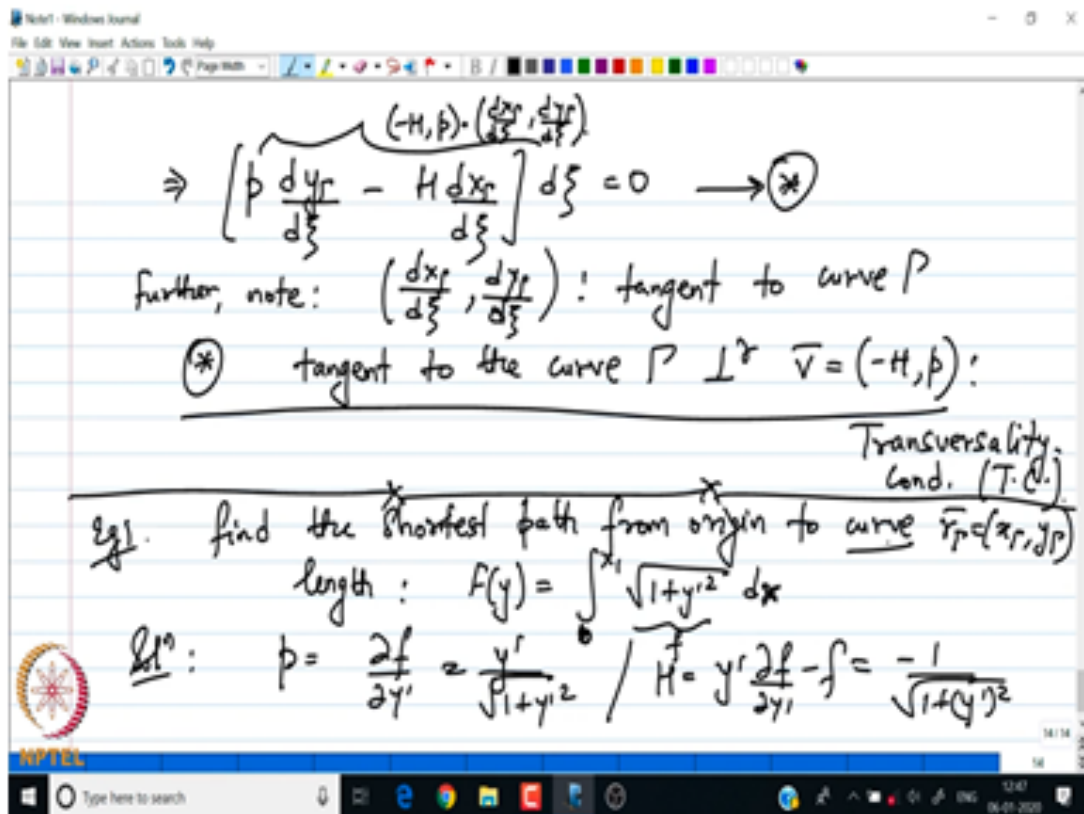 Note1 - Windows Journal
File Edit View Insert Actions Tools Help
Page Width
(-H, p) · (dx_Γ/dξ, dy_Γ/dξ)
⇒ [p dy_Γ/dξ - H dx_Γ/dξ] dξ = 0 → (*)
further, note: (dx_Γ/dξ, dy_Γ/dξ) : tangent to curve Γ
(*) tangent to the curve Γ ⊥^r V̄ = (-H, p) :
Transversality
Cond. (T.C.)
Eg1. find the shortest path from origin to curve r̄_Γ=(x_Γ, y_Γ)
length : F(y) = ∫_0^{x_1} √(1+y'^2) dx
f
Sol^n : p = ∂f/∂y' = y'/√(1+y'^2) / H = y' ∂f/∂y' - f = -1/√(1+(y')^2)
14/14
NPTEL
14
Type here to search
ENG
12:47
06-01-2020